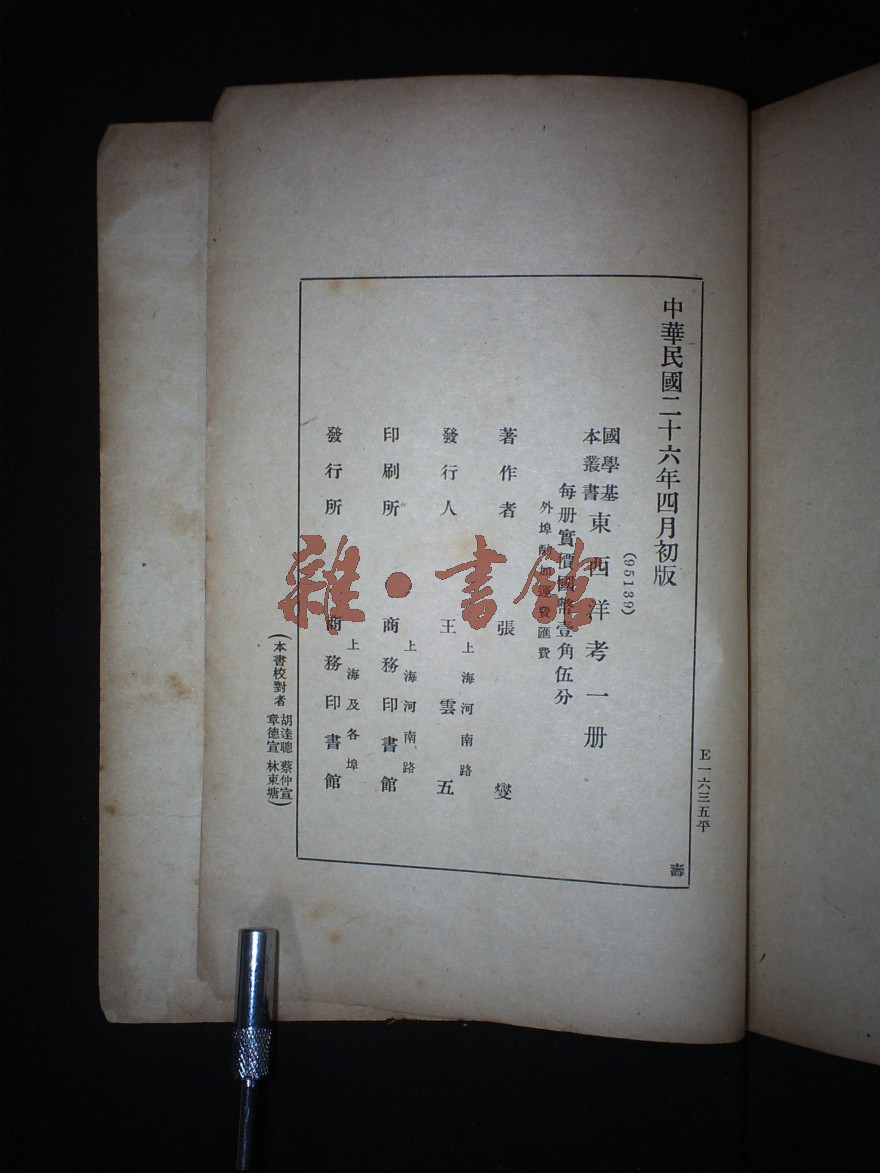 中華民國二十六年四月初版
(95139)
國學基
本叢書
東西洋考一册
每册實價國幣壹角伍分
外埠酌加運費匯費
著作者 張燮
發行人 王雲五
上海河南路
印刷所 商務印書館
上海河南路
發行所 商務印書館
上海及各埠
(本書校對者 胡達聰 蔡仲宣
章德宣 林東塘)
E一六三五平
壽
雜·書館